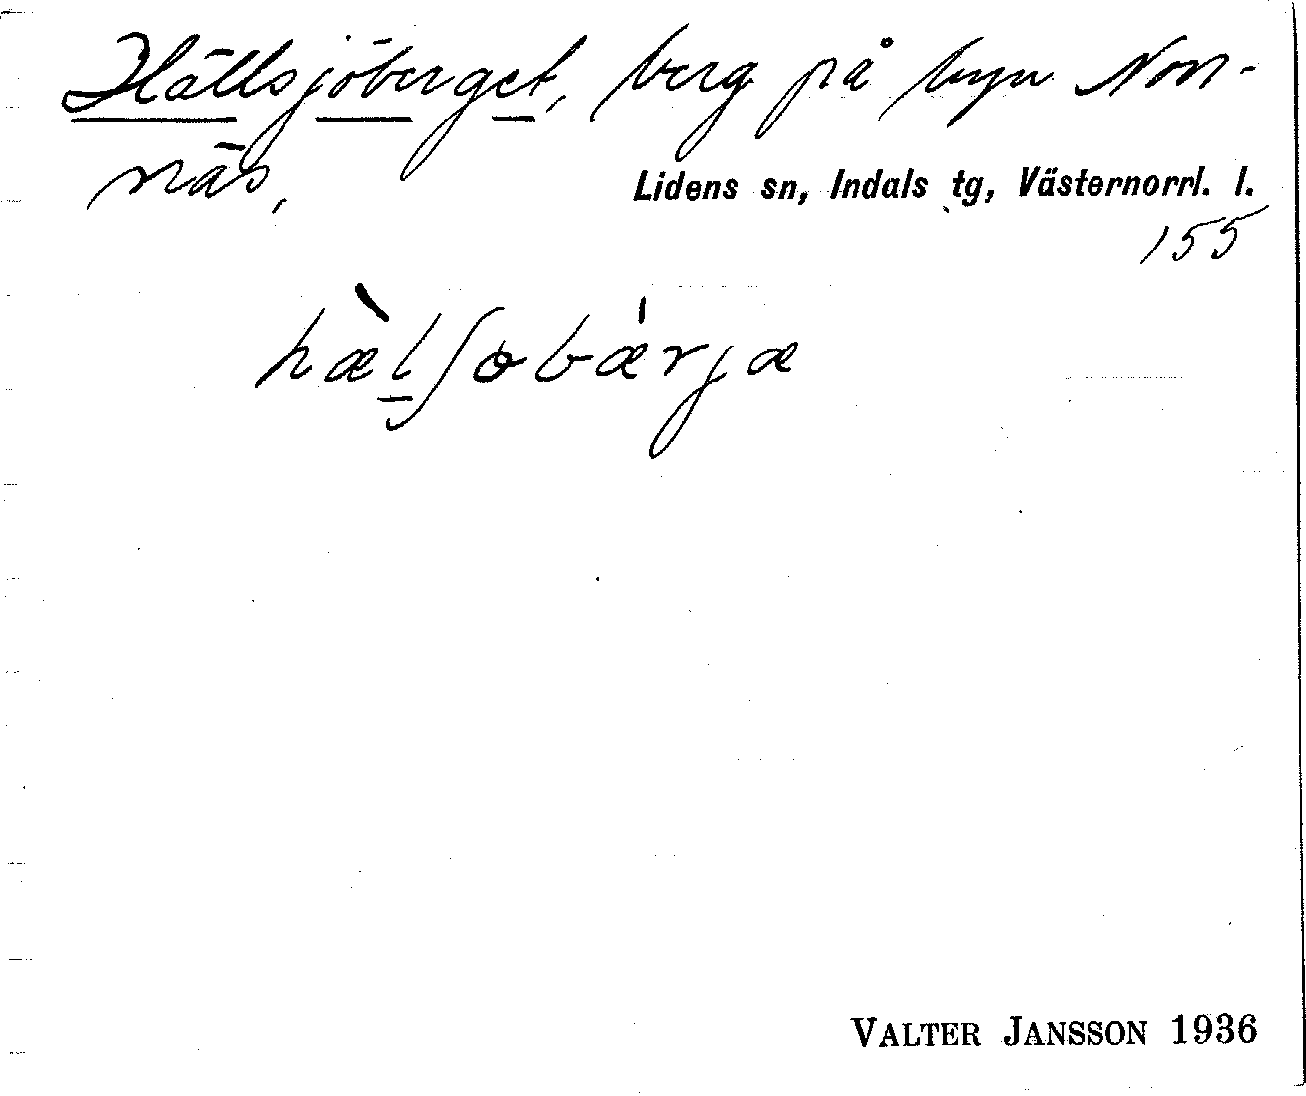 Hällsjöberget, berg på byn Norr-
näs,
Lidens sn, Indals tg, Västernorrl. l.
155
hæ̀lʃobǽrjæ
VALTER JANSSON 1936